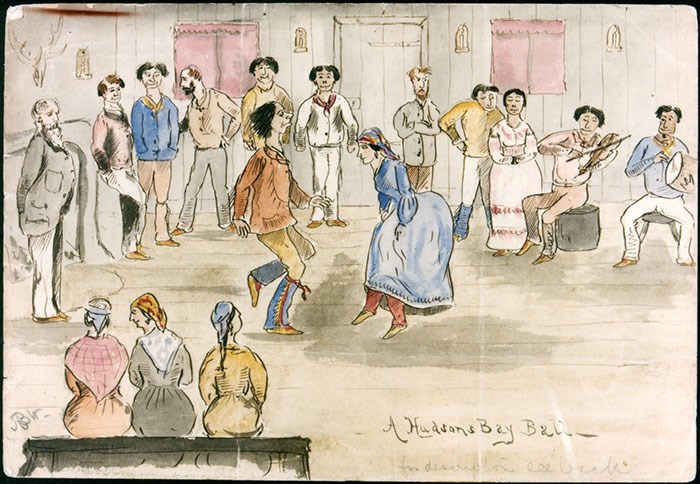 A Hudsons Bay Ball
for description see back